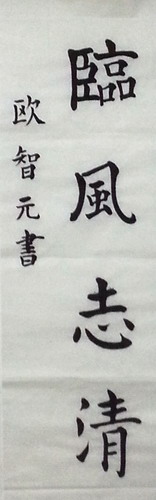 臨風志清
欧智元書